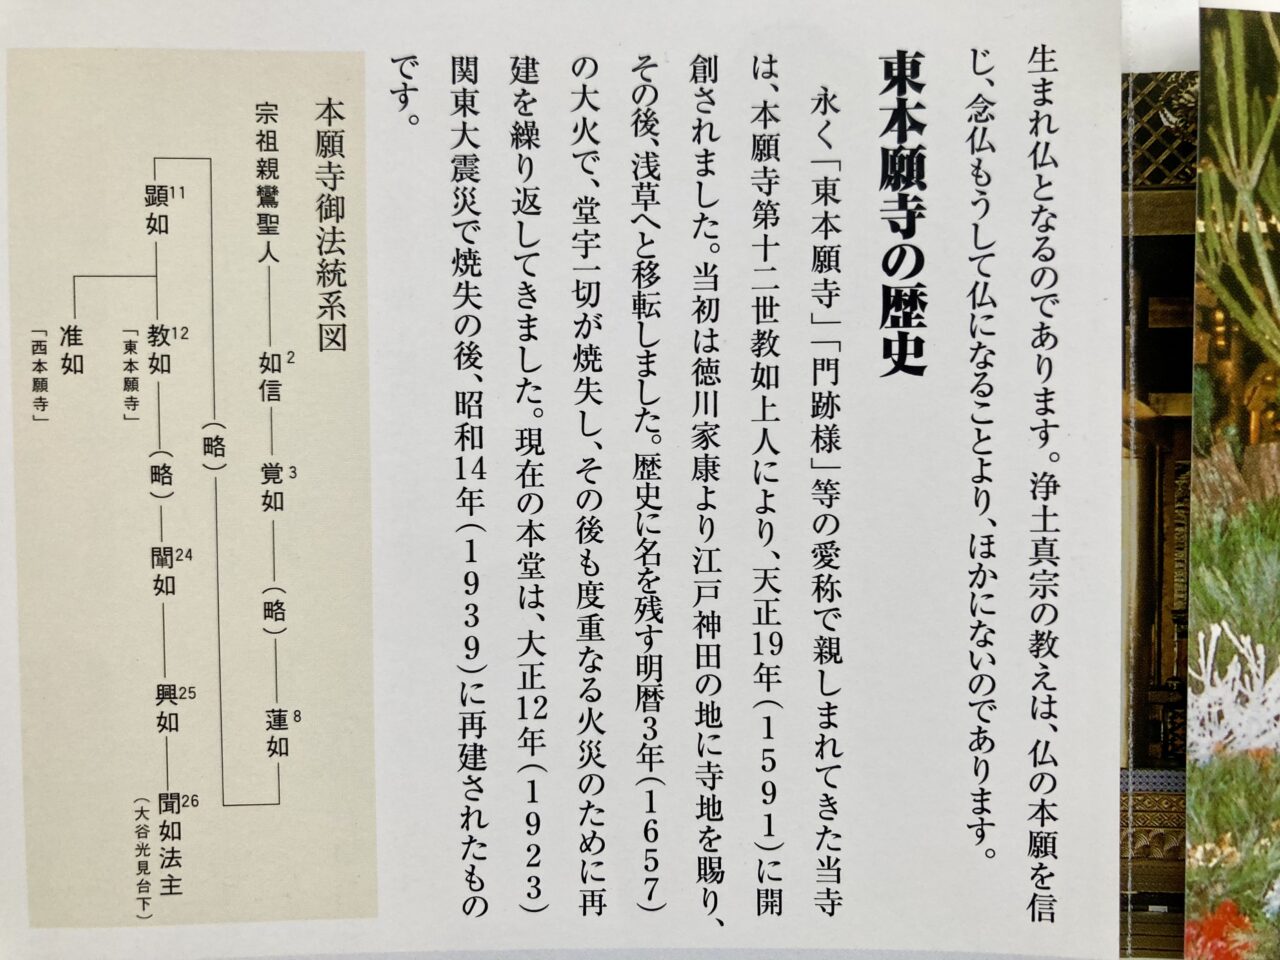 生まれ仏となるのであります。浄土真宗の教えは、仏の本願を信
じ、念仏もうして仏になることより、ほかにないのであります。
東本願寺の歴史
永く「東本願寺」「門跡様」等の愛称で親しまれてきた当寺
は、本願寺第十二世教如上人により、天正19年(1591)に開
創されました。当初は徳川家康より江戸神田の地に寺地を賜り、
その後、浅草へと移転しました。歴史に名を残す明暦3年(1657)
の大火で、堂宇一切が焼失し、その後も度重なる火災のために再
建を繰り返してきました。現在の本堂は、大正12年(1923)
関東大震災で焼失の後、昭和14年(1939)に再建されたもの
です。
本願寺御法統系図
宗祖親鸞聖人
如信2
覚如3
(略)
蓮如8
(略)
顕如11
教如12
「東本願寺」
(略)
闡如24
興如25
聞如法主26
(大谷光見台下)
准如
「西本願寺」